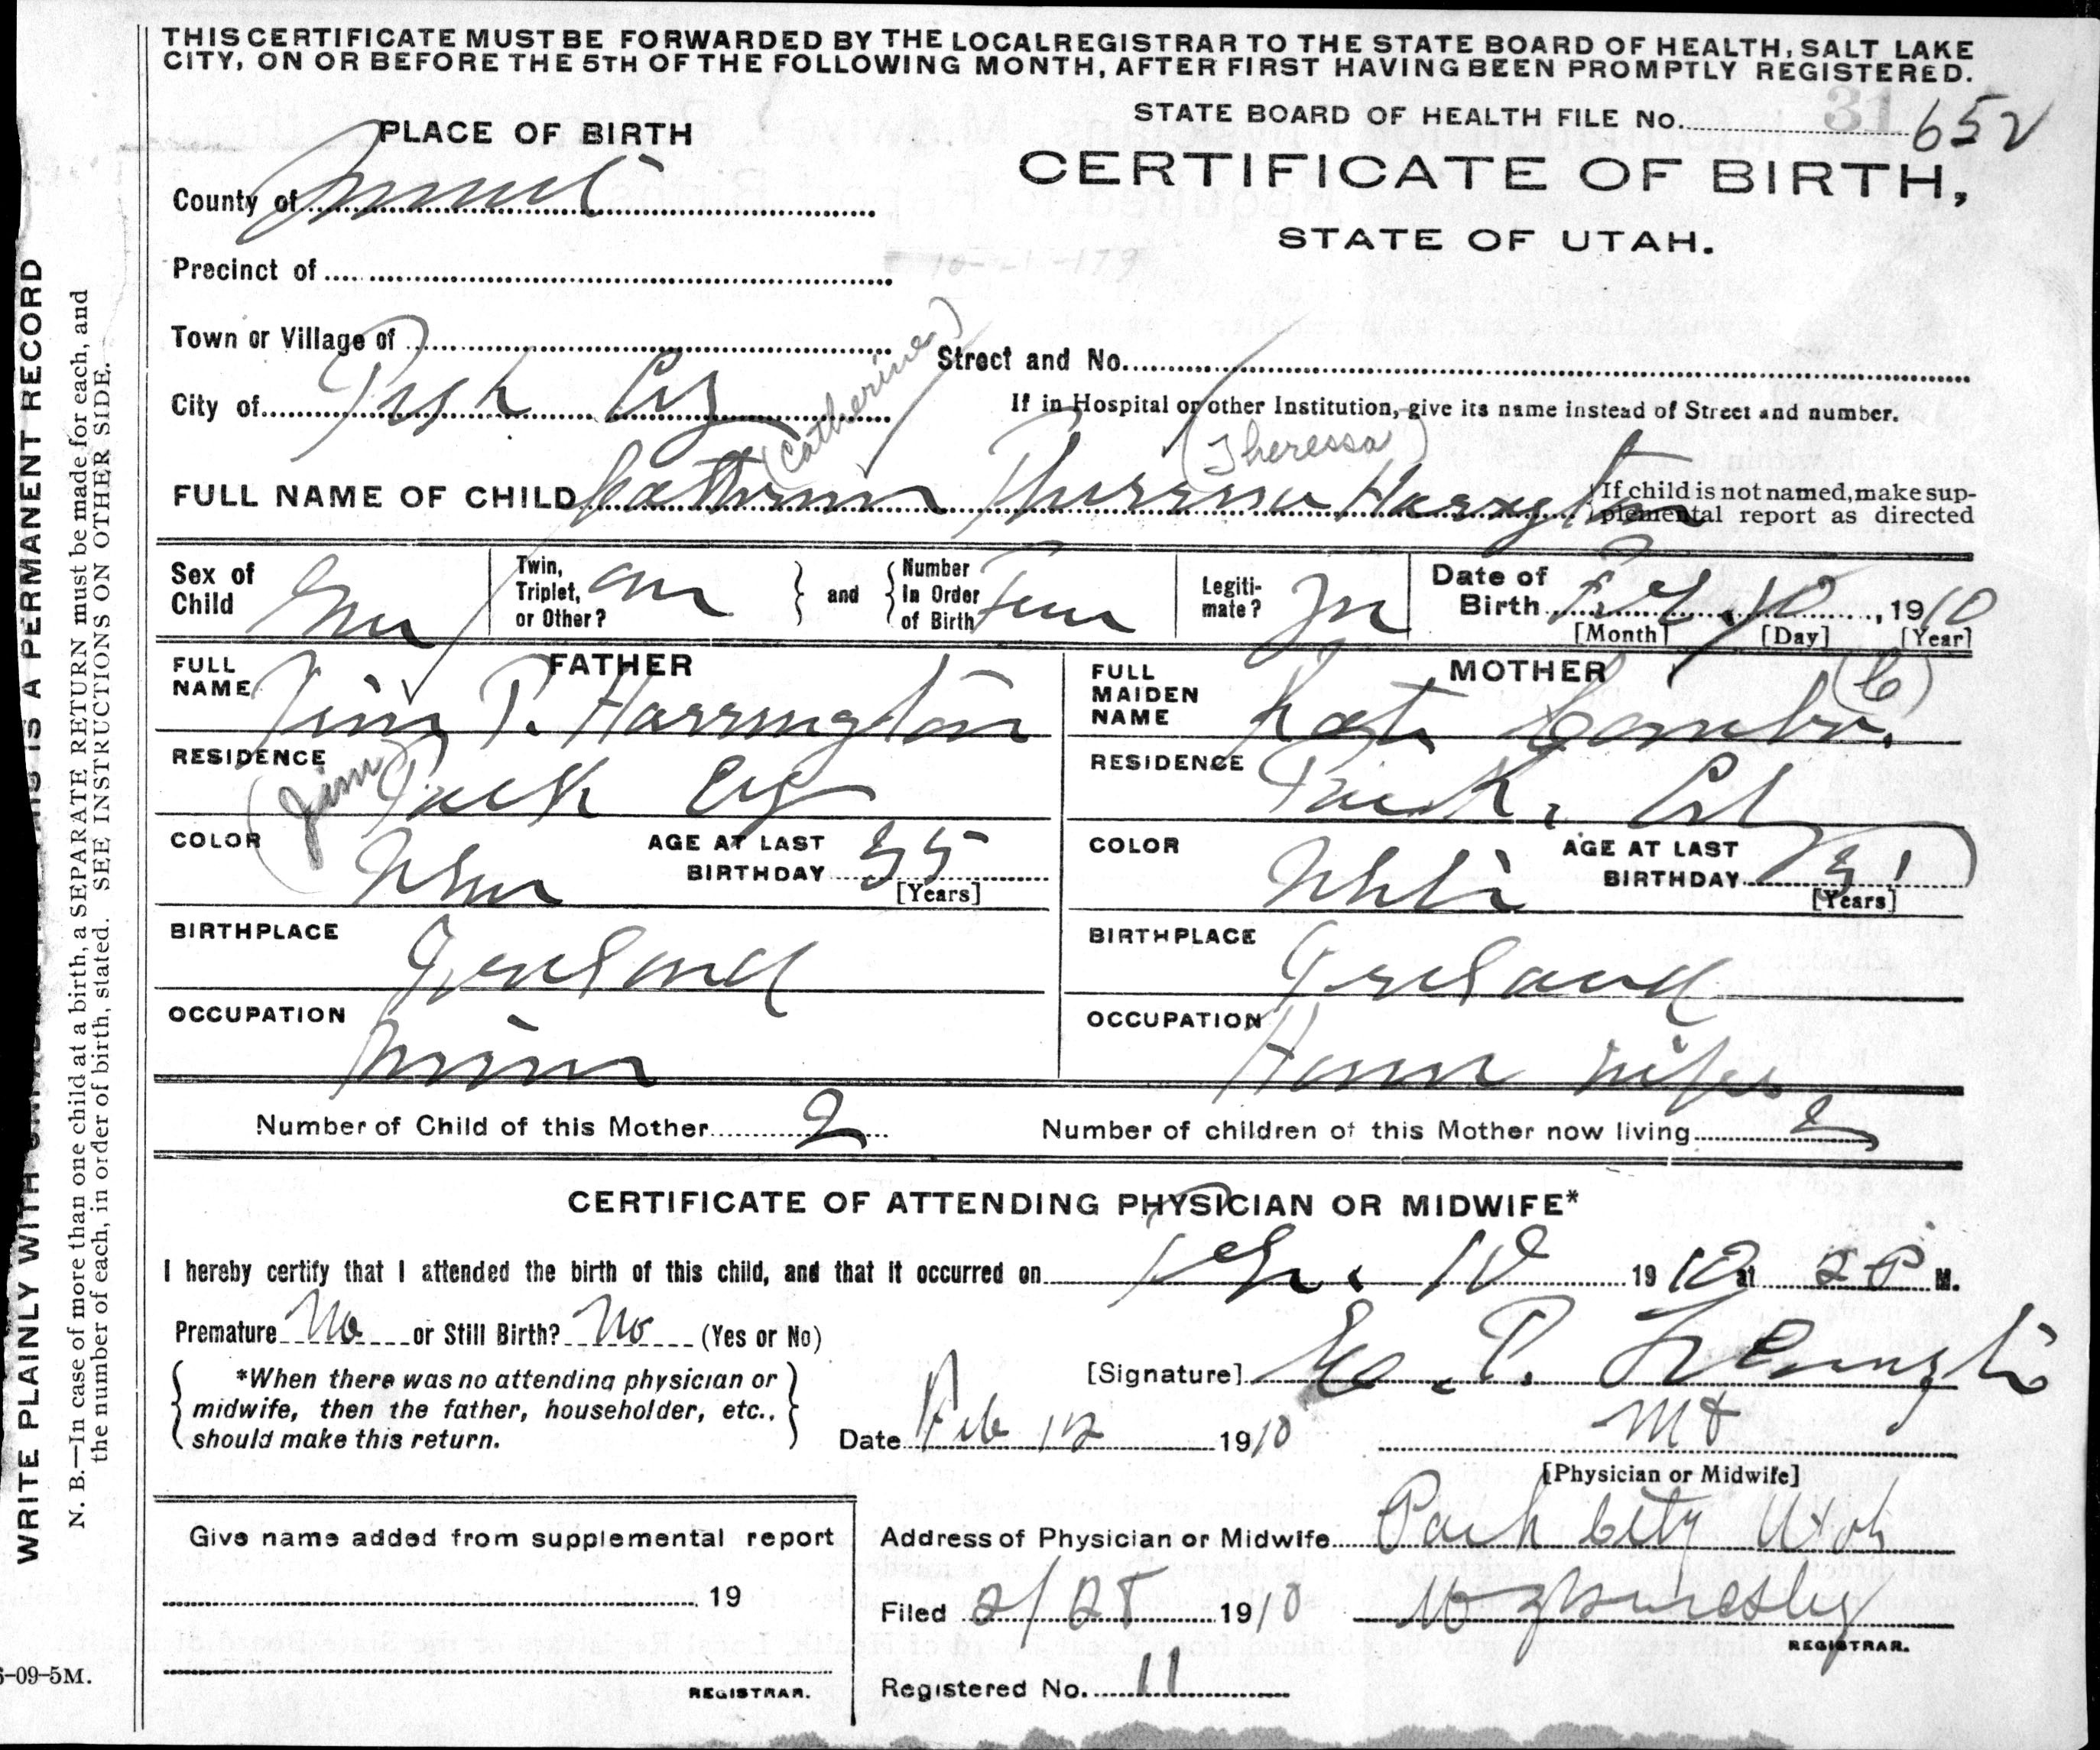 THIS CERTIFICATE MUST BE FORWARDED BY THE LOCAL REGISTRAR TO THE STATE BOARD OF HEALTH, SALT LAKE
CITY, ON OR BEFORE THE 5TH OF THE FOLLOWING MONTH, AFTER FIRST HAVING BEEN PROMPTLY REGISTERED.
WRITE PLAINLY WITH THIS IS A PERMANENT RECORD
N. B.—In case of more than one child at a birth, a SEPARATE RETURN must be made for each, and
the number of each, in order of birth, stated. SEE INSTRUCTIONS ON OTHER SIDE.
STATE BOARD OF HEALTH FILE No. 31 652
PLACE OF BIRTH
CERTIFICATE OF BIRTH,
STATE OF UTAH.
County of Summit
Precinct of
Town or Village of
Street and No.
City of Park City
If in Hospital or other Institution, give its name instead of Street and number.
(Catherine) (Theressa)
FULL NAME OF CHILD Catherine Theressa Harrington
If child is not named, make sup-
plemental report as directed
Sex of Child
Twin, Triplet, or Other?
and
Number In Order of Birth
Legiti-mate?
Date of Birth Feb 10, 1910
[Month] [Day] [Year]
FATHER
FULL NAME Jim P. Harrington
(Jim)
RESIDENCE Park City
COLOR White
AGE AT LAST BIRTHDAY 35
[Years]
BIRTHPLACE Ireland
OCCUPATION Miner
MOTHER
FULL MAIDEN NAME Kate
(C)
RESIDENCE Park City
COLOR White
AGE AT LAST BIRTHDAY 31
[Years]
BIRTHPLACE Ireland
OCCUPATION House wife
Number of Child of this Mother 2
Number of children of this Mother now living 2
CERTIFICATE OF ATTENDING PHYSICIAN OR MIDWIFE*
I hereby certify that I attended the birth of this child, and that it occurred on Feb. 10 1910 at 2 P M.
Premature No or Still Birth? No (Yes or No)
*When there was no attending physician or
midwife, then the father, householder, etc.,
should make this return.
[Signature] P.
Date Feb 12 1910
MD
[Physician or Midwife]
Give name added from supplemental report
19
REGISTRAR.
Address of Physician or Midwife Park City Utah
Filed 2/28 1910
REGISTRAR.
Registered No. 11
6-09-5M.